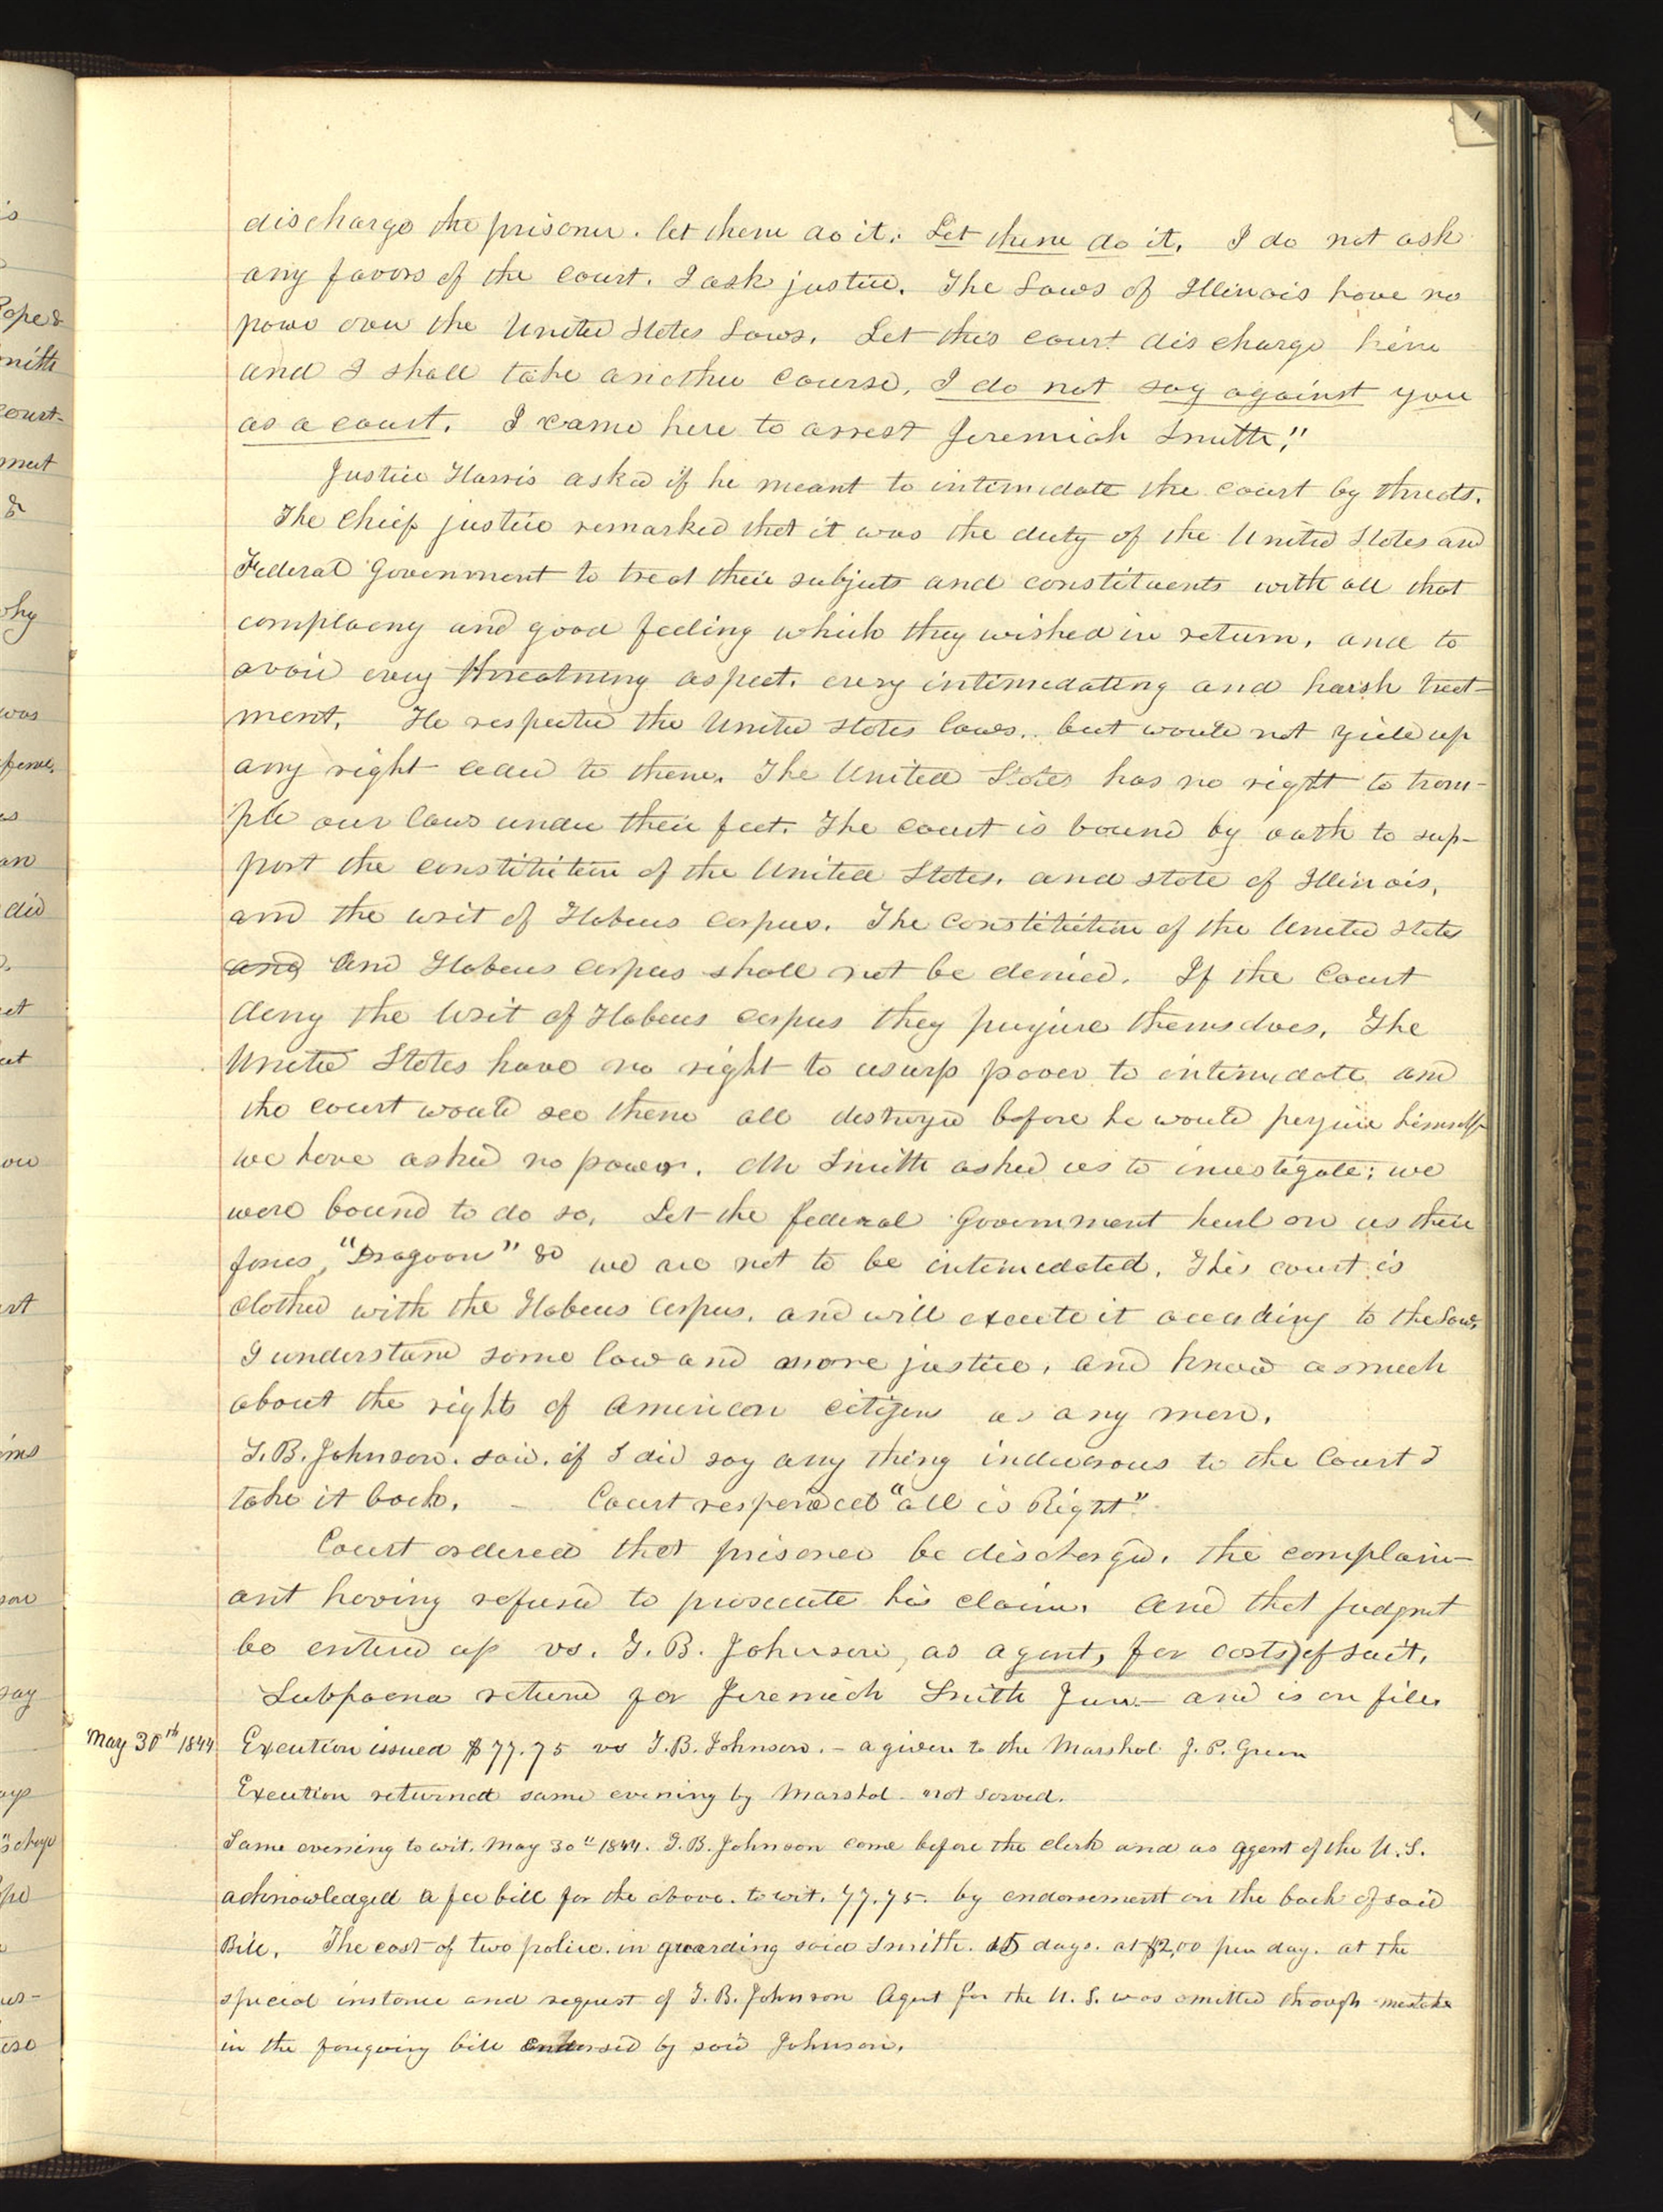 discharge the prisoner. let them do it. Let them do it. I do not ask
any favors of the court. I ask justice. The Laws of Illinois have no
power over the United States Laws. Let this court discharge him
and I shall take another course, I do not say against you
as a court. I came here to arrest Jeremiah Smith."
Justice Harris asked if he meant to intimidate the court by threats.
The chief justice remarked that it was the duty of the United States and
Federal Government to treat their subjects and constituents with all that
complacency and good feeling which they wished in return, and to
avoid every threatning aspect. every intimidating and harsh treat-
ment. He respected the United States laws, but would not yield up
any right ceded to them. The United States has no right to tram-
ple our laws under their feet. The court is bound by oath to sup-
port the constitution of the United States, and state of Illinois,
and the writ of Habeus Corpus. The Constitution of the United States
and and Habeus Corpus shall not be denied. If the Court
deny the Writ of Habeus Corpus they purjure themselves. The
United States have no right to usurp power to intimidate and
the court would see them all destroyed before he would perjure himself
we have asked no power. Mr Smith asked us to investigate; we
were bound to do so. Let the federal Government hurl on us their
forces, "Dragoon" &c we are not to be intimidated. This court is
clothed with the Habeus Corpus. and will execute it according to the Law.
I understand some law and more justice, and know as much
about the rights of American citizens as any man.
T. B. Johnson. said. if I did say any thing indecorous to the Court I
take it back. – Court responded "all is Right".
Court ordered that prisoner be discharged. the complain-
ant having refused to prosecute his claim. and that judgmt
be entered up vs. T. B. Johnson, as agent, for costs) of suit.
Subpoena returnd for Jeremiah Smith Junr – and is on file.
May 30th 1844 Execution issued $77.75 vs T. B. Johnson. – a given to the Marshal J. P. Green
Execution returned same evening by Marshal not served.
Same evening to wit. May 30" 1844. T. B. Johnson came before the clerk and as agent of the U. S.
acknowledged a fee bill for the above. to wit. 77.75. by endorsement on the back of said
Bill. The cost of two police. in guarding said Smith. 15 days. at $2,00 per day. at the
special instance and request of T. B. Johnson Agent for the U. S. was omitted through mistake
in the foregoing bill endorsed by said Johnson.